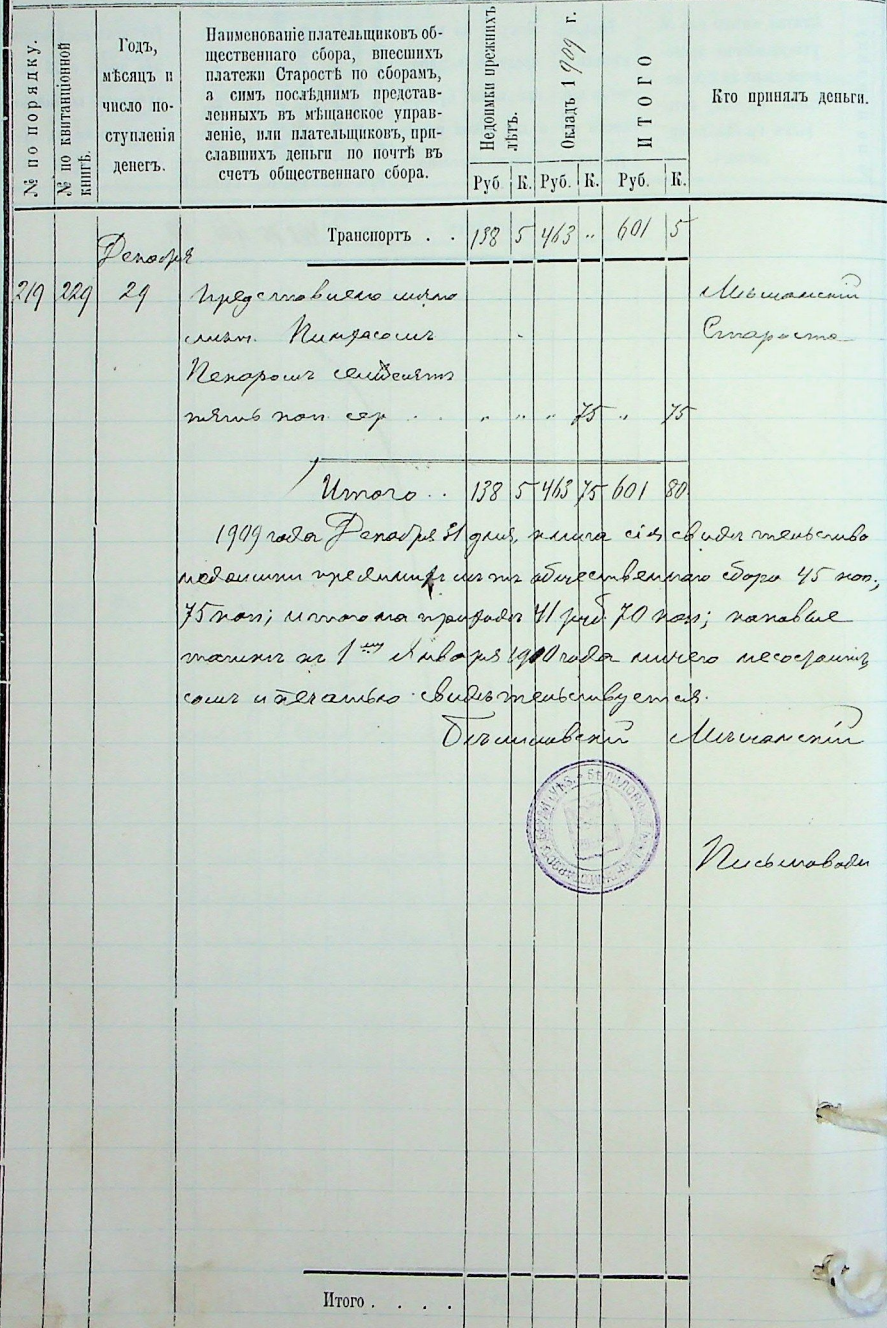 № по порядку.
№ по квитанціонной книгѣ.
Годъ,
мѣсяцъ и
число по-
ступленія
денегъ.
Наименованіе плательщиковъ об-
щественнаго сбора, внесшихъ
платежи Старостѣ по сборамъ,
а симъ послѣднимъ представ-
ленныхъ въ мѣщанское управ-
леніе, или плательщиковъ, при-
славшихъ деньги по почтѣ въ
счетъ общественнаго сбора.
Недоимки прежнихъ лѣтъ.
Окладъ 1909 г.
ИТОГО
Кто принялъ деньги.
Руб. К. Руб. К. Руб. К.
Транспортъ . . 138 5 463 „ 601 5
Декабря
219 229 29 Представлено Мѣщанскій
Пинхасомъ Староста
Пекаромъ семдесятъ
пять коп. сер . . „ „ „ 75 „ 75
Итого . . 138 5 463 75 601 80
1909 года Декабря 31 дня, книга сія свидѣтельство
недоимки прежнихъ лѣтъ общественнаго сбора 45 коп.,
75 коп; итого на приходъ 41 руб 70 коп; каковые
къ 1му Января 1910 года ничего
и печатью свидѣтельствуется.
Бѣлиловскій Мѣщанскій
Письмоводи
Итого . . . .